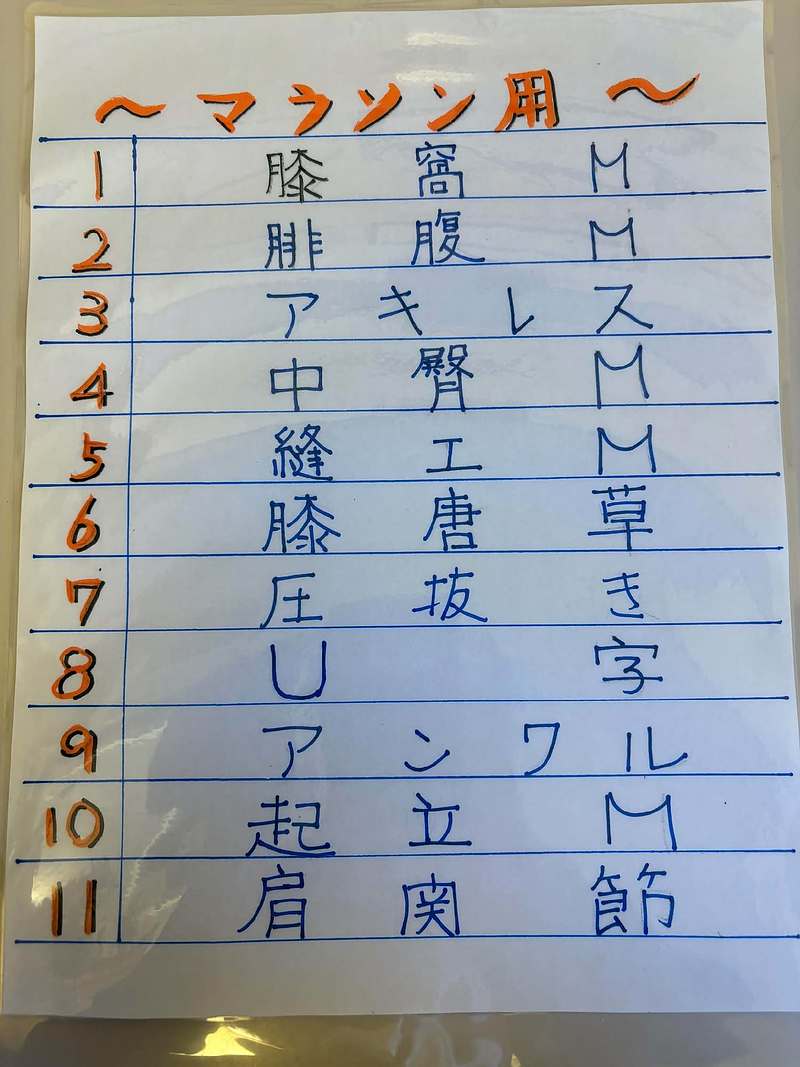 ～マウソン用～
1 膝窩M
2 腓腹M
3 アキレス
4 中臀M
5 縫工M
6 膝唐草
7 圧抜き
8 U字
9 アンワル
10 起立M
11 肩関節